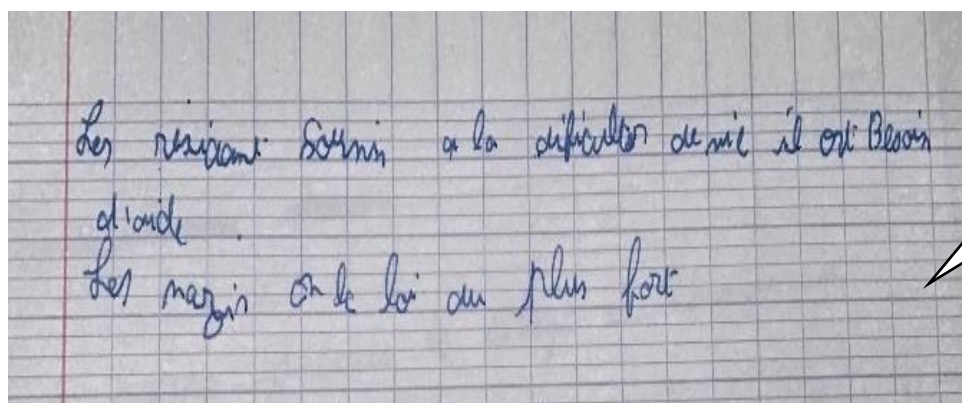 Les soumis a la dificulter de vie il ont Besoin
d'aide
Les on le loi du plus fort